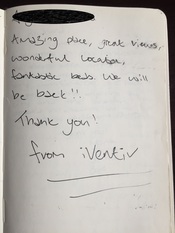 Amazing place, great views,
wonderful location,
fantastic beds. We will
be back!!
Thank you!
from iVentiv